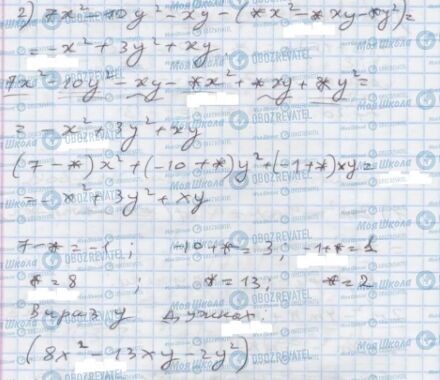 2) 7x² - 10y² - xy - (*x² - *xy - *y²) =
= -x² + 3y² + xy
7x² - 10y² - xy - *x² + *xy + *y² =
= -x² + 3y² + xy
(7 - *)x² + (-10 + *)y² + (-1 + *)xy =
= -x² + 3y² + xy
7 - * = -1; -10 + * = 3; -1 + * = 1
* = 8 ; * = 13; * = 2
Вираз у дужках:
(8x² - 13xy - 2y²)